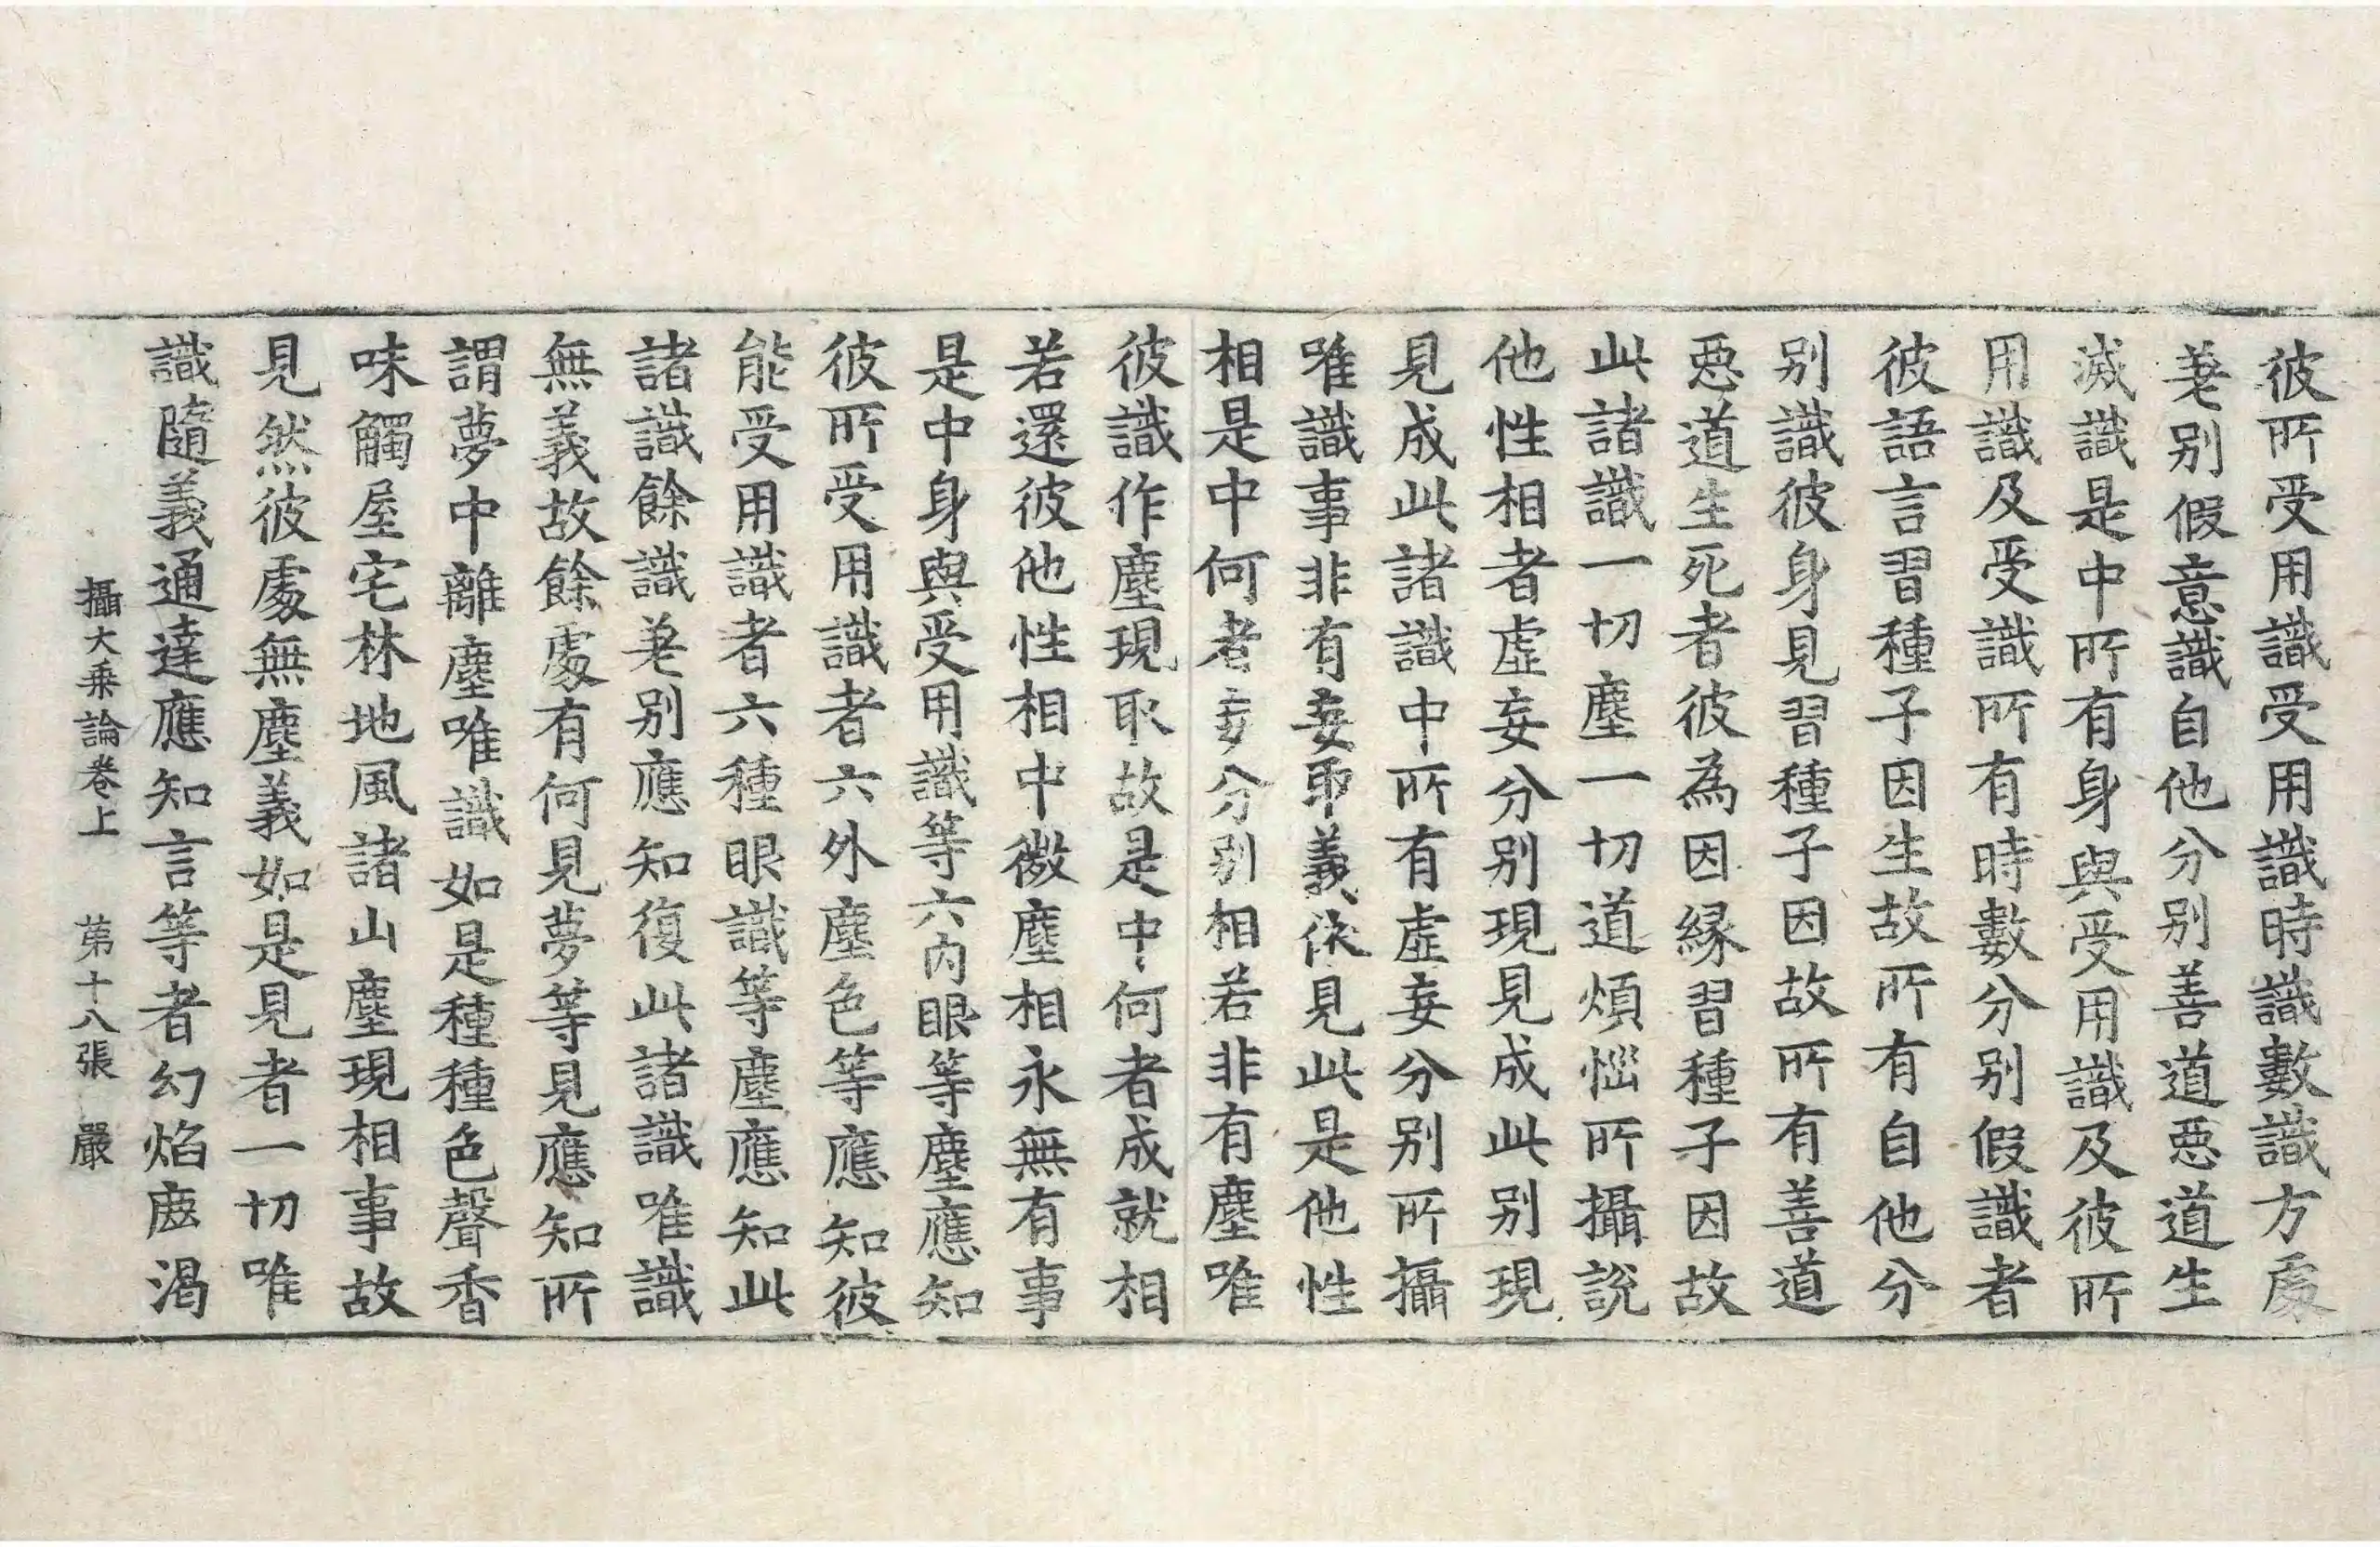 彼所受用識受用識時識數識方處
差别假意識自他分别善道惡道生
滅識是中所有身與受用識及彼所
用識及受識所有時數分别假識者
彼語言習種子因生故所有自他分
别識彼身見習種子因故所有善道
惡道生死者彼為因緣習種子因故
此諸識一切塵一切道煩惱所攝說
他性相者虛妄分别現見成此别現
見成此諸識中所有虛妄分别所攝
唯識事非有妄取義依見此是他性
相是中何者妄分别相若非有塵唯
彼識作塵現取故是中何者成就相
若還彼他性相中微塵相永無有事
是中身與受用識等六内眼等塵應知
彼所受用識者六外塵色等應知彼
能受用識者六種眼識等塵應知此
諸識餘識差别應知復此諸識唯識
無義故餘處有何見夢等見應知所
謂夢中離塵唯識如是種種色聲香
味觸屋宅林地風諸山塵現相事故
見然彼處無塵義如是見者一切唯
識隨義通達應知言等者幻焰鹿渴
攝大乘論卷上 苐十八張 嚴